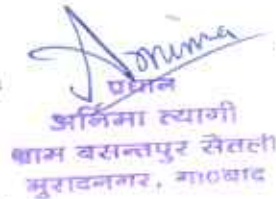 Anima
प्रधान
अनिमा त्यागी
ग्राम बसन्तपुर सैतली
मुरादनगर, गा०बाद